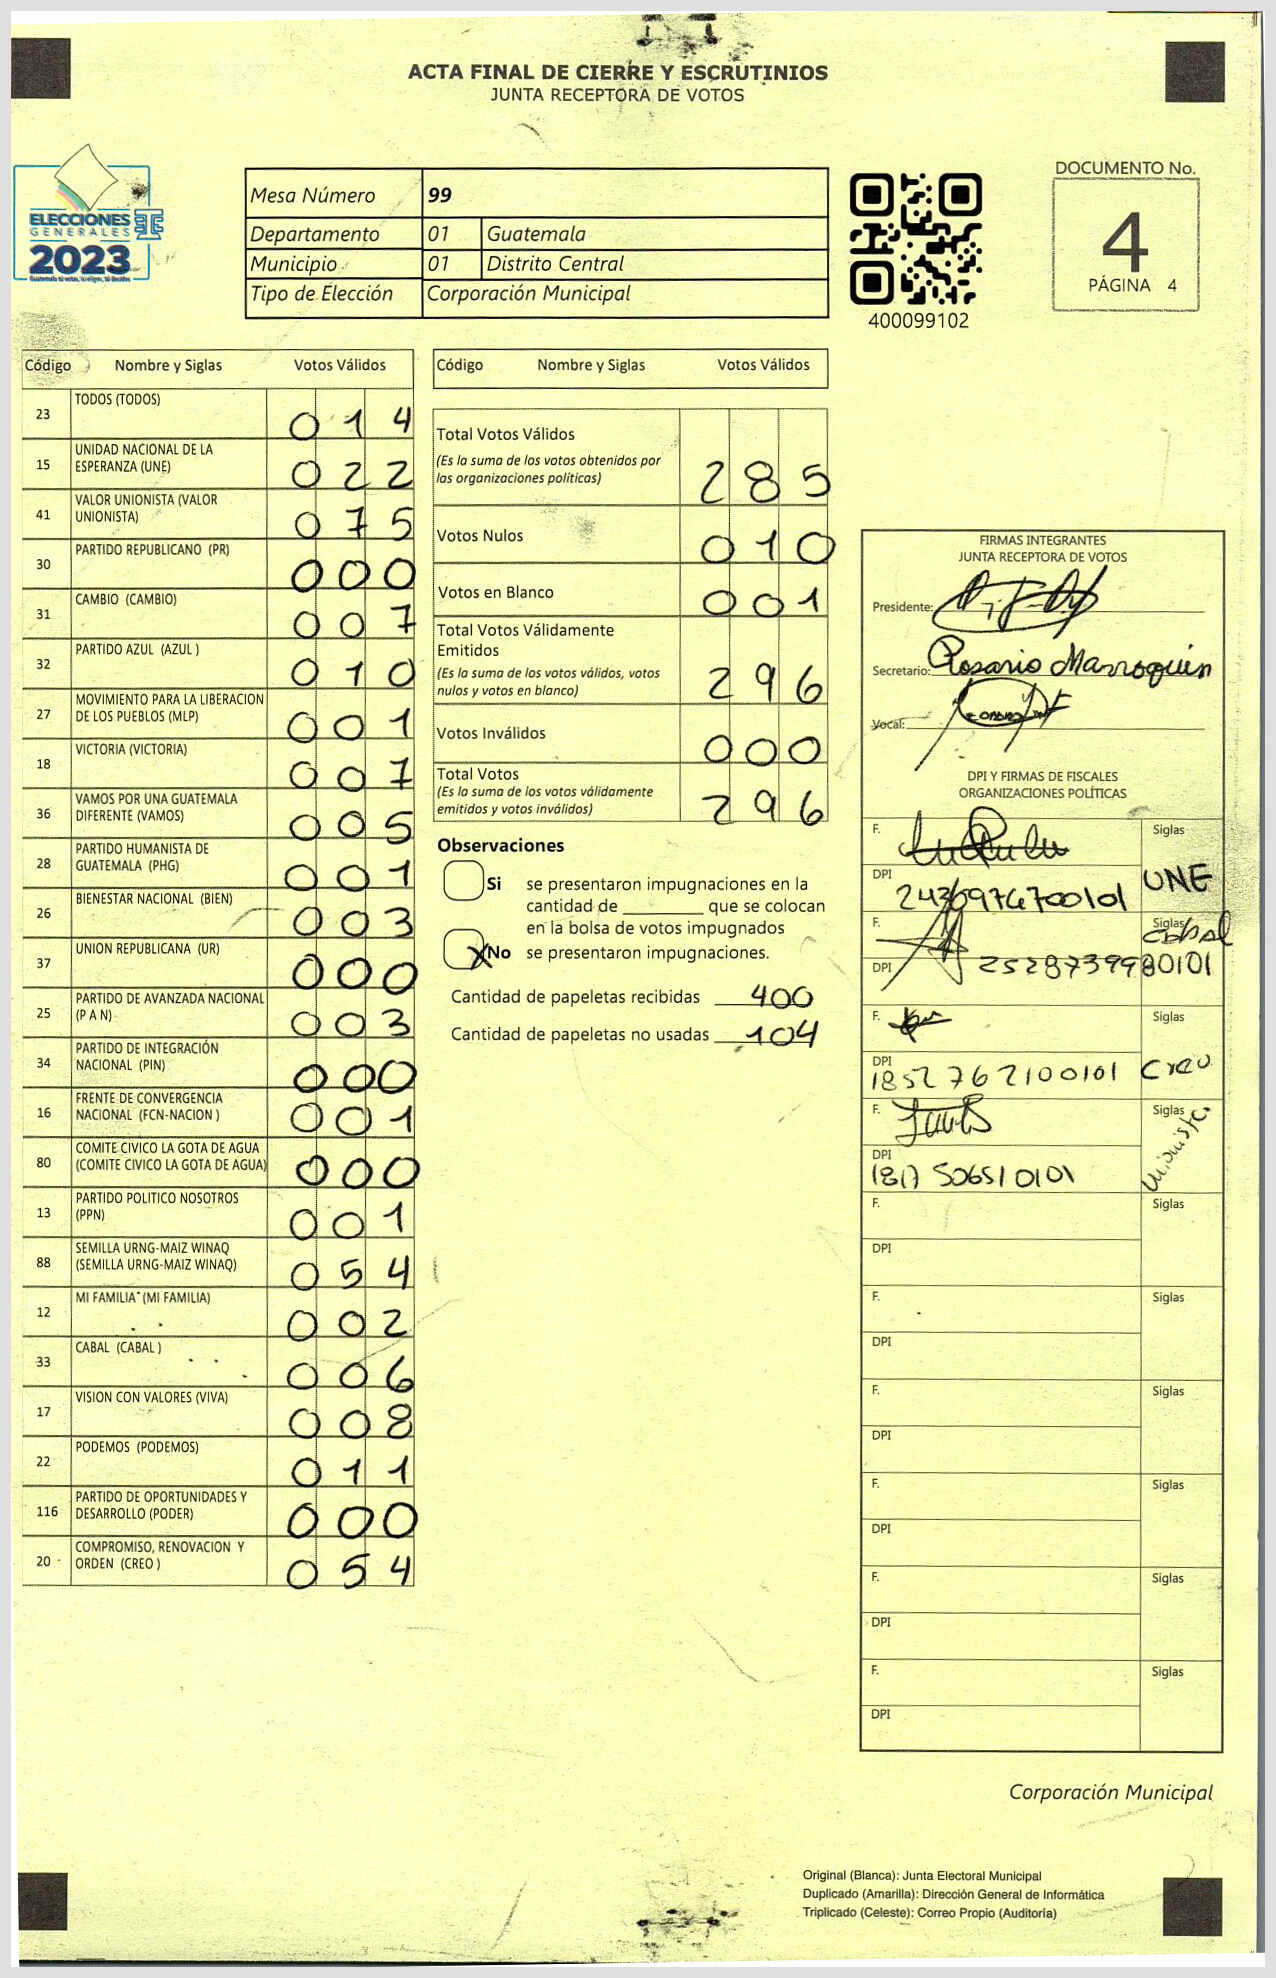 ACTA FINAL DE CIERRE Y ESCRUTINIOS
JUNTA RECEPTORA DE VOTOS
ELECCIONES
GENERALES
2023
Mesa Número 99
Departamento 01 Guatemala
Municipio 01 Distrito Central
Tipo de Elección Corporación Municipal
400099102
DOCUMENTO No.
4
PÁGINA 4
Código Nombre y Siglas Votos Válidos
23 TODOS (TODOS) 014
15 UNIDAD NACIONAL DE LA
ESPERANZA (UNE) 022
41 VALOR UNIONISTA (VALOR
UNIONISTA) 075
30 PARTIDO REPUBLICANO (PR) 000
31 CAMBIO (CAMBIO) 007
32 PARTIDO AZUL (AZUL ) 010
27 MOVIMIENTO PARA LA LIBERACION
DE LOS PUEBLOS (MLP) 001
18 VICTORIA (VICTORIA) 007
36 VAMOS POR UNA GUATEMALA
DIFERENTE (VAMOS) 005
28 PARTIDO HUMANISTA DE
GUATEMALA (PHG) 001
26 BIENESTAR NACIONAL (BIEN) 003
37 UNION REPUBLICANA (UR) 000
25 PARTIDO DE AVANZADA NACIONAL
(P A N) 003
34 PARTIDO DE INTEGRACIÓN
NACIONAL (PIN) 000
16 FRENTE DE CONVERGENCIA
NACIONAL (FCN-NACION ) 001
80 COMITE CIVICO LA GOTA DE AGUA
(COMITE CIVICO LA GOTA DE AGUA) 000
13 PARTIDO POLITICO NOSOTROS
(PPN) 001
88 SEMILLA URNG-MAIZ WINAQ
(SEMILLA URNG-MAIZ WINAQ) 054
12 MI FAMILIA (MI FAMILIA) 002
33 CABAL (CABAL ) 006
17 VISION CON VALORES (VIVA) 008
22 PODEMOS (PODEMOS) 011
116 PARTIDO DE OPORTUNIDADES Y
DESARROLLO (PODER) 000
20 COMPROMISO, RENOVACION Y
ORDEN (CREO ) 054
Código Nombre y Siglas Votos Válidos
Total Votos Válidos
(Es la suma de los votos obtenidos por
las organizaciones políticas) 285
Votos Nulos 010
Votos en Blanco 001
Total Votos Válidamente
Emitidos
(Es la suma de los votos válidos, votos
nulos y votos en blanco) 296
Votos Inválidos 000
Total Votos
(Es la suma de los votos válidamente
emitidos y votos inválidos) 296
Observaciones
Si se presentaron impugnaciones en la
cantidad de ________ que se colocan
en la bolsa de votos impugnados
X No se presentaron impugnaciones.
Cantidad de papeletas recibidas 400
Cantidad de papeletas no usadas 104
FIRMAS INTEGRANTES
JUNTA RECEPTORA DE VOTOS
Presidente:
Secretario: Rosario Marroquín
Vocal:
DPI Y FIRMAS DE FISCALES
ORGANIZACIONES POLÍTICAS
F. Siglas
DPI UNE
F. Siglas Cabal
DPI 2528739980101
F. Siglas
DPI 1852762100101 Creo
F. Siglas Unionista
DPI
F. Siglas
DPI
F. Siglas
DPI
F. Siglas
DPI
F. Siglas
DPI
F. Siglas
DPI
F. Siglas
DPI
Corporación Municipal
Original (Blanca): Junta Electoral Municipal
Duplicado (Amarilla): Dirección General de Informática
Triplicado (Celeste): Correo Propio (Auditoría)